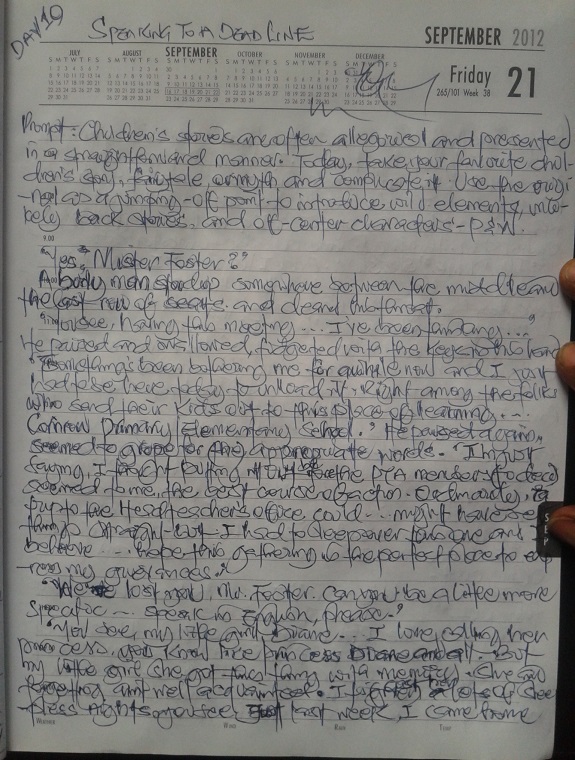 DAY 19
SPEAKING TO A DEADLINE
SEPTEMBER 2012
JULY AUGUST SEPTEMBER OCTOBER NOVEMBER DECEMBER
Friday 21
265/101 Week 38
Prompt: Children's stories are often allegorical and presented
in a straightforward manner. Today, take your favorite chil-
dren's story, fairytale, or myth and complicate it. Use the origi-
-nal as a jumping-off point to introduce wild elements, unli-
kely back stories, and off-center characters - P&W.
9.00
"Yes, Mister Foster?"
A man stood up somewhere between the middle and
the last row of seats and cleared his throat.
"You see, having this meeting... I've been ..."
He paused and swallowed, fidgeted with the keys in his hand
"Something's been bothering me for quite a while now and I just
had to be here today to unload it. Right among the folks
who send their kids out to this place of learning...
Primary/Elementary School." He paused again,
seemed to grope for the appropriate words. "I'm just
saying, I thought putting it out before the PTA members
seemed to me, the best course of action.
up to the Headteacher's office, could... might have
things straight but I had to sleep over this one and I
believe... hope this gathering is the perfect place to
my grievances."
"We've lost you, Mr. Foster. Can you be a little more
specific... speak in English, please."
"You see, my little girl, Diane... I love calling her
princess, you know like princess Diane and all. But
my little girl she got this thing with memory. She and
forgetting aint well acquainted. I lots of slee-
pless nights you see, just last week, I came from
WEATHER WIND RAIN TEMP